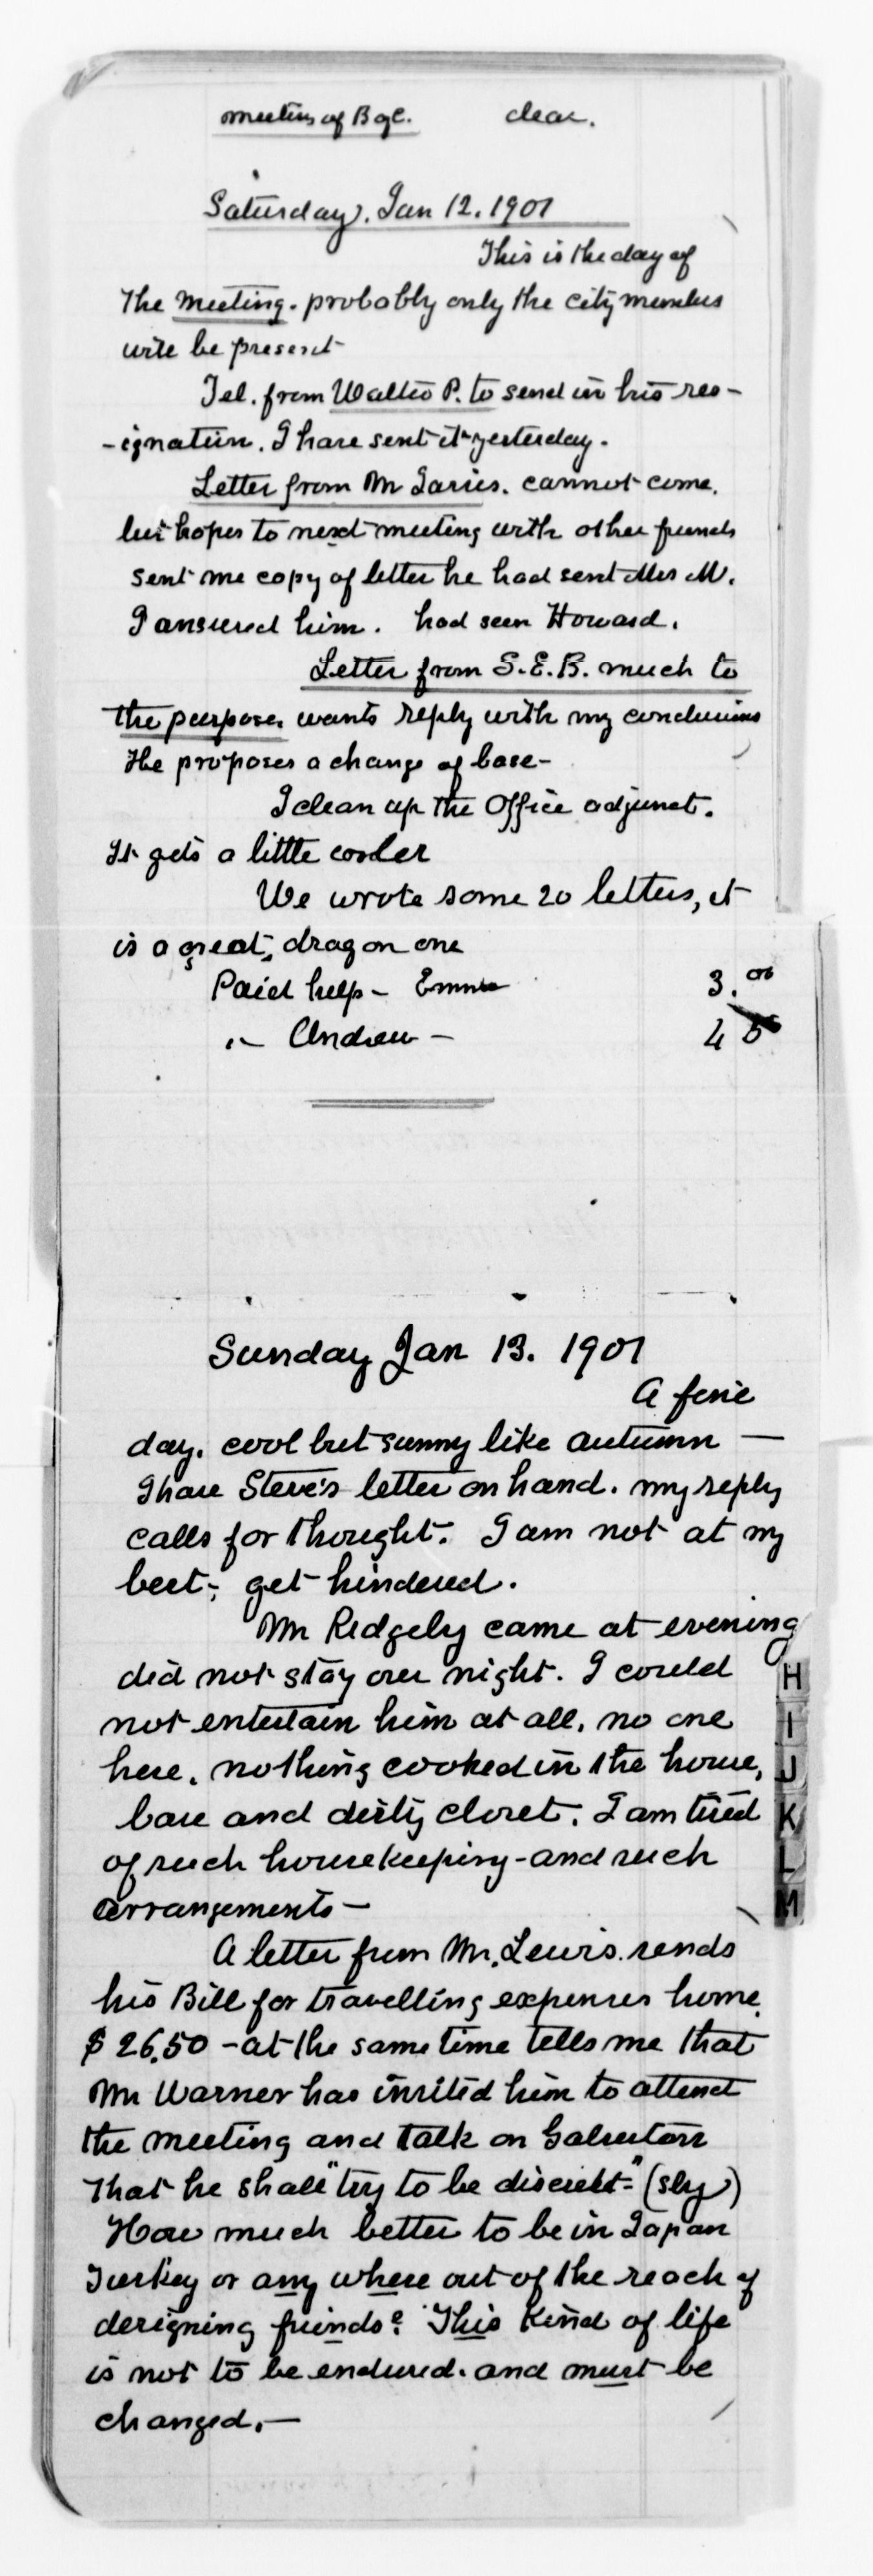 Meeting of B of C. clear.
Saturday. Jan 12. 1901
This is the day of
the meeting. probably only the city members
will be present
Tel. from Walter P. to send in his res-
-ignation. I have sent it yesterday.
Letter from Mr cannot come.
but hopes to next meeting with other friends
sent me copy of letter he had sent Mrs M.
I answered him. had seen Howard.
Letter from S.E.B. much to
the purpose. wants reply with my conclusions
He proposes a change of base-
I clean up the Office adjunct.
It gets a little cooler
We wrote some 20 letters, it
is a great drag on one
Paid help - Emma 3.00
" - Andrew - 4
Sunday Jan 13. 1901
A fine
day. cool but sunny like autumn —
I have Steve's letter on hand. my reply
calls for thought. I am not at my
best; get hindered.
Mr Ridgely came at evening
did not stay over night. I could
not entertain him at all, no one
here, nothing cooked in the house,
bare and dirty closet. I am tired
of such housekeeping - and such
arrangements —
A letter from Mr. Lewis. sends
his Bill for travelling expenses home.
$ 26.50 - at the same time tells me that
Mr Warner has invited him to attend
the meeting and talk on Galveston
that he shall "try to be discreet" (sly)
How much better to be in Japan
Turkey or any where out of the reach of
designing friends? This kind of life
is not to be endured. and must be
changed. —
H
I
J
K
L
M